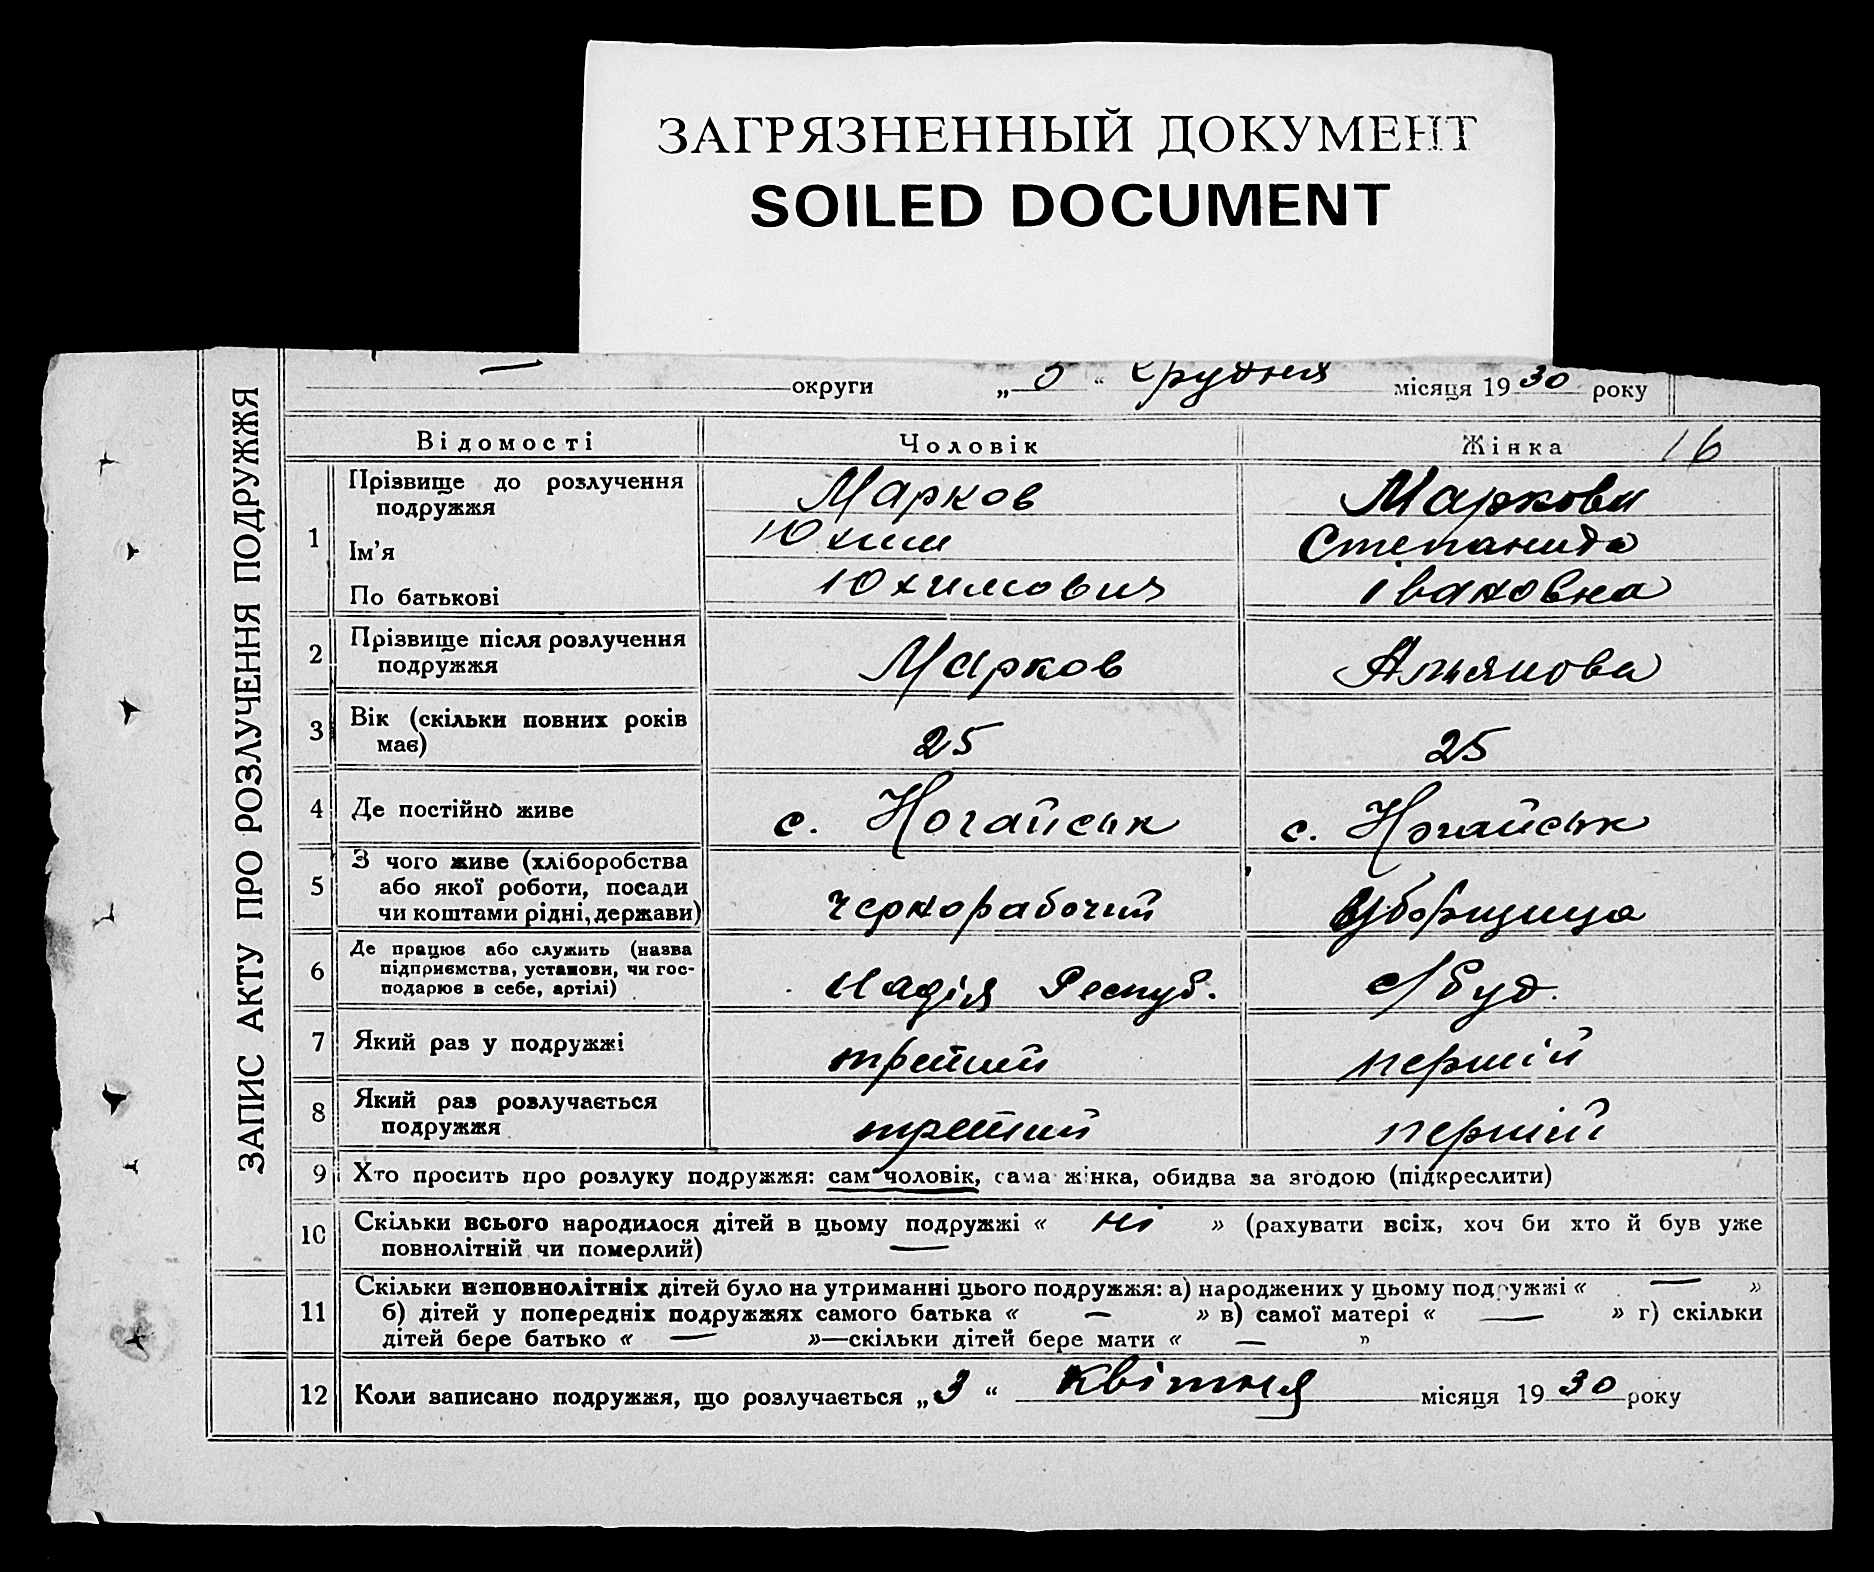 ЗАГРЯЗНЕННЫЙ ДОКУМЕНТ
SOILED DOCUMENT
— округи „ “ Грудня місяця 1930 року
ЗАПИС АКТУ ПРО РОЗЛУЧЕННЯ ПОДРУЖЖЯ
Відомості Чоловік Жінка 16
1 Прізвище до розлучення подружжя Марков Маркова
Ім’я Юхим Степанида
По батькові Юхимович Івановна
2 Прізвище після розлучення
подружжя Марков
3 Вік (скільки повних років
має) 25 25
4 Де постійно живе с. Ногайськ с. Ногайськ
5 З чого живе (хліборобства
або якої роботи, посади
чи коштами рідні, держави) чернорабочий Уборщица
6 Де працює або служить (назва
підприємства, установи, чи гос-
подарює в себе, артілі) Надія Респуб. с/буд.
7 Який раз у подружжі третий первий
8 Який раз розлучається
подружжя третий первий
9 Хто просить про розлуку подружжя: сам чоловік, сама жінка, обидва за згодою (підкреслити)
10 Скільки всього народилося дітей в цьому подружжі « ні » (рахувати всіх, хоч би хто й був уже
повнолітній чи померлий) —
11 Скільки неповнолітніх дітей було на утриманні цього подружжя: а) народжених у цьому подружжі « — »
б) дітей у попередніх подружжях самого батька « — » в) самої матері « — » г) скільки
дітей бере батько « — »—скільки дітей бере мати « — »
12 Коли записано подружжя, що розлучається „3“ квітня місяця 1930 року